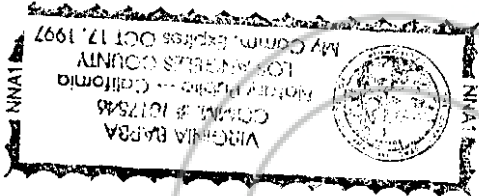 VIRGINIA BARBA
COMM. # 1077546
Notary Public — California
LOS ANGELES COUNTY
My Comm. Expires OCT 17, 1997
NNA1
NNA1